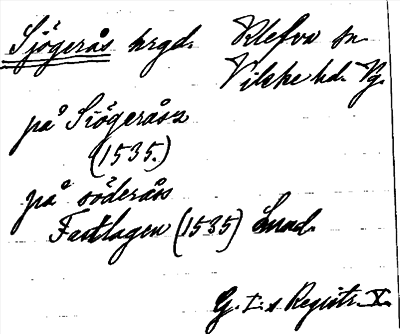 Sjögerås hrgd. Klefva sn.
Vilske hd. Vg.
på Siögeråsz
(1535.)
på söderåsz
Fastlagen (1535)
G. I:s Registr. X.